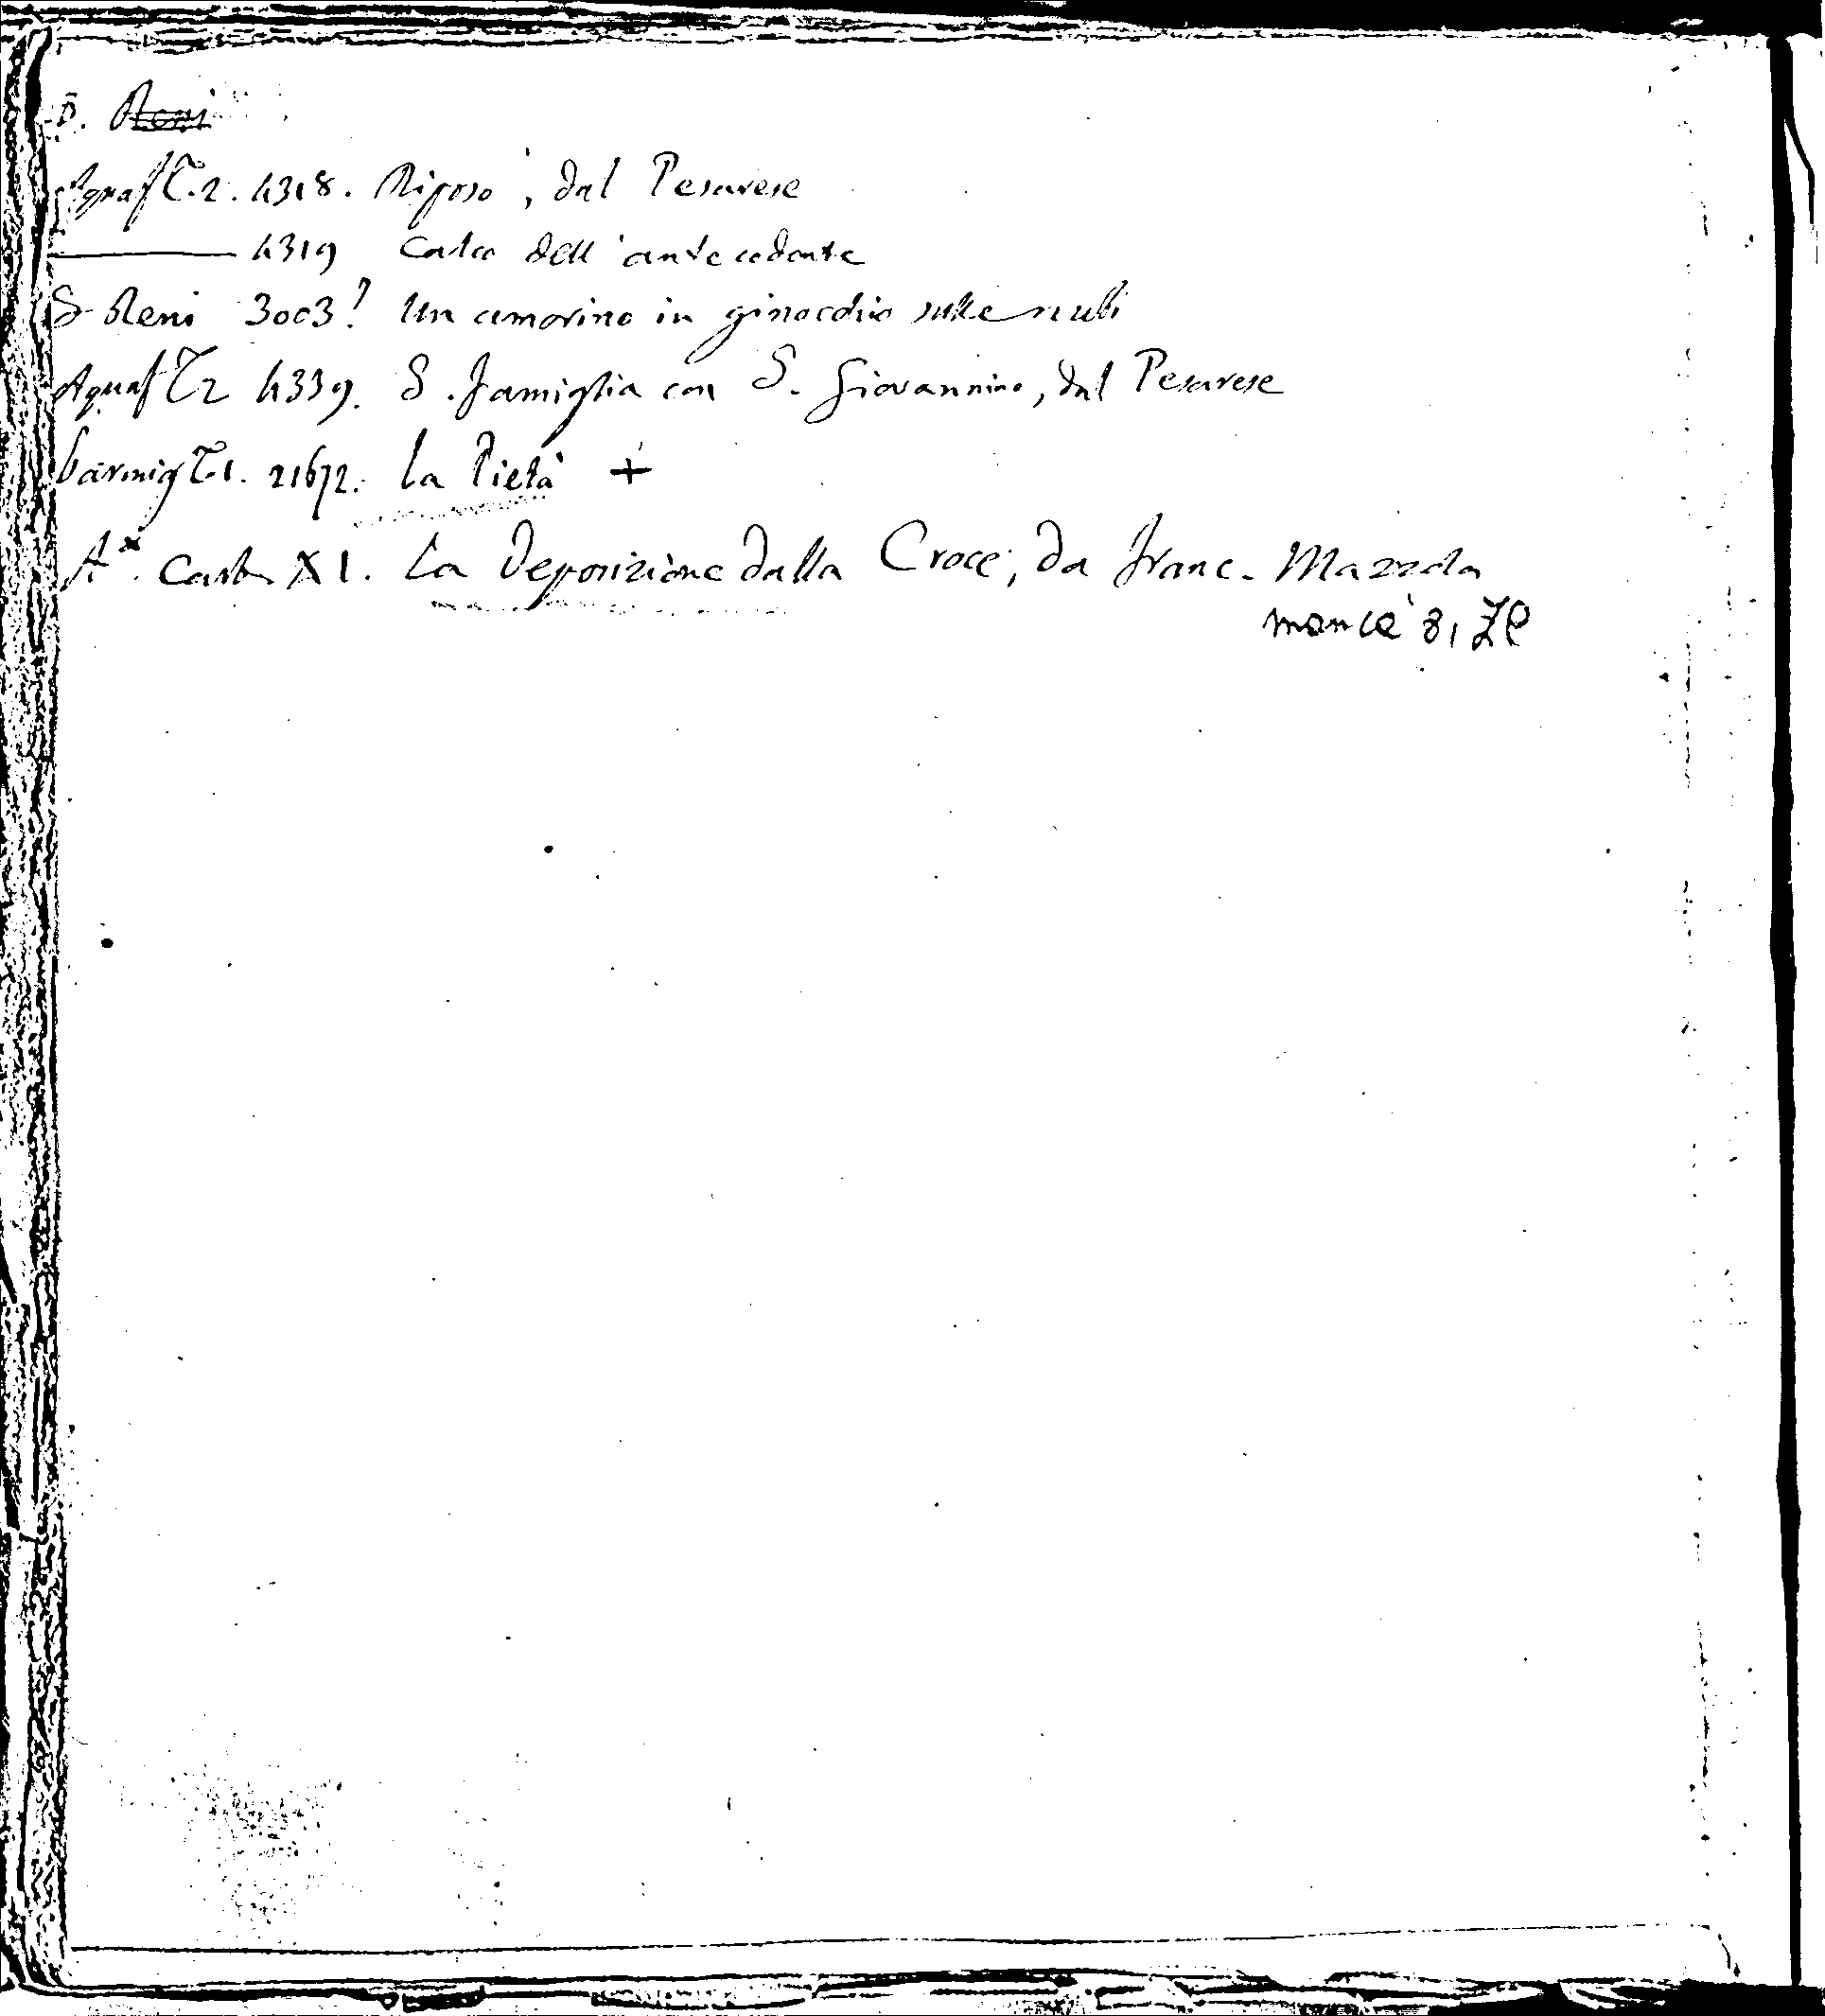 D. Reni
Aquaf T.2. 4318. Riposo, dal Pesarese
4319 Calco dell'antecedente
S Reni 3003! Un amorino in ginocchio sulle nubi
Aquaf T2 4339. S. Famiglia con S. Giovannino, dal Pesarese
Parmig T.1. 21672. La Pietà +
A*. Cart XI. La Deposizione dalla Croce, da Franc. Mazzola
manca 8,